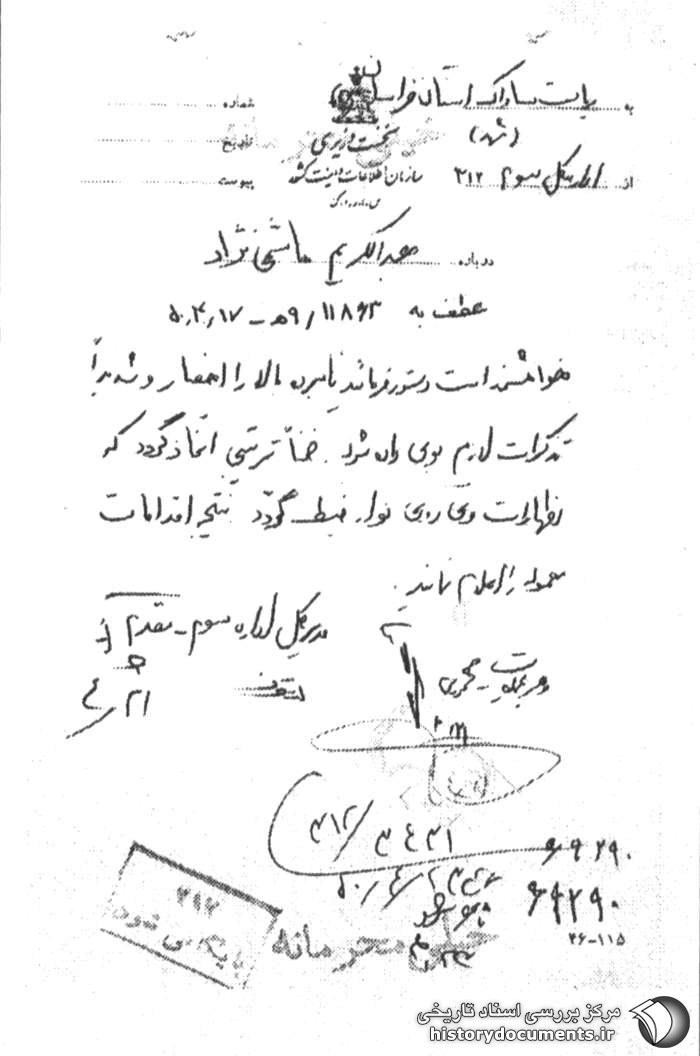 به ریاست ساواک استان خراسان
شماره
(مشهد)
نخست وزیری
تاریخ
از اداره کل سوم ۳۱۲
سازمان اطلاعات و امنیت کشور
پیوست
س.ا.و.ا.ک
درباره عبدالکریم هاشمی نژاد
عطف به ۱۱۸۶۳/ ۹هـ - ۵۰٫۴٫۱۷
خواهشمند است دستور فرمائید نامبرده بالا را احضار و شدیداً
تذکرات لازم بوی داده شود. ضمناً ترتیبی اتخاذ گردد که
اظهارات وی روی نوار ضبط گردد نتیجه اقدامات
معموله را اعلام نمایند.
مدیر کل اداره سوم - مقدم
۴/۲۱
۳۱۲/
۶۹۲۹۰
۶۹۲۹۰
۳۱۲
بایگانی شود
خیلی محرمانه
۳۶-۱۱۵
مرکز بررسی اسناد تاریخی
historydocuments.ir